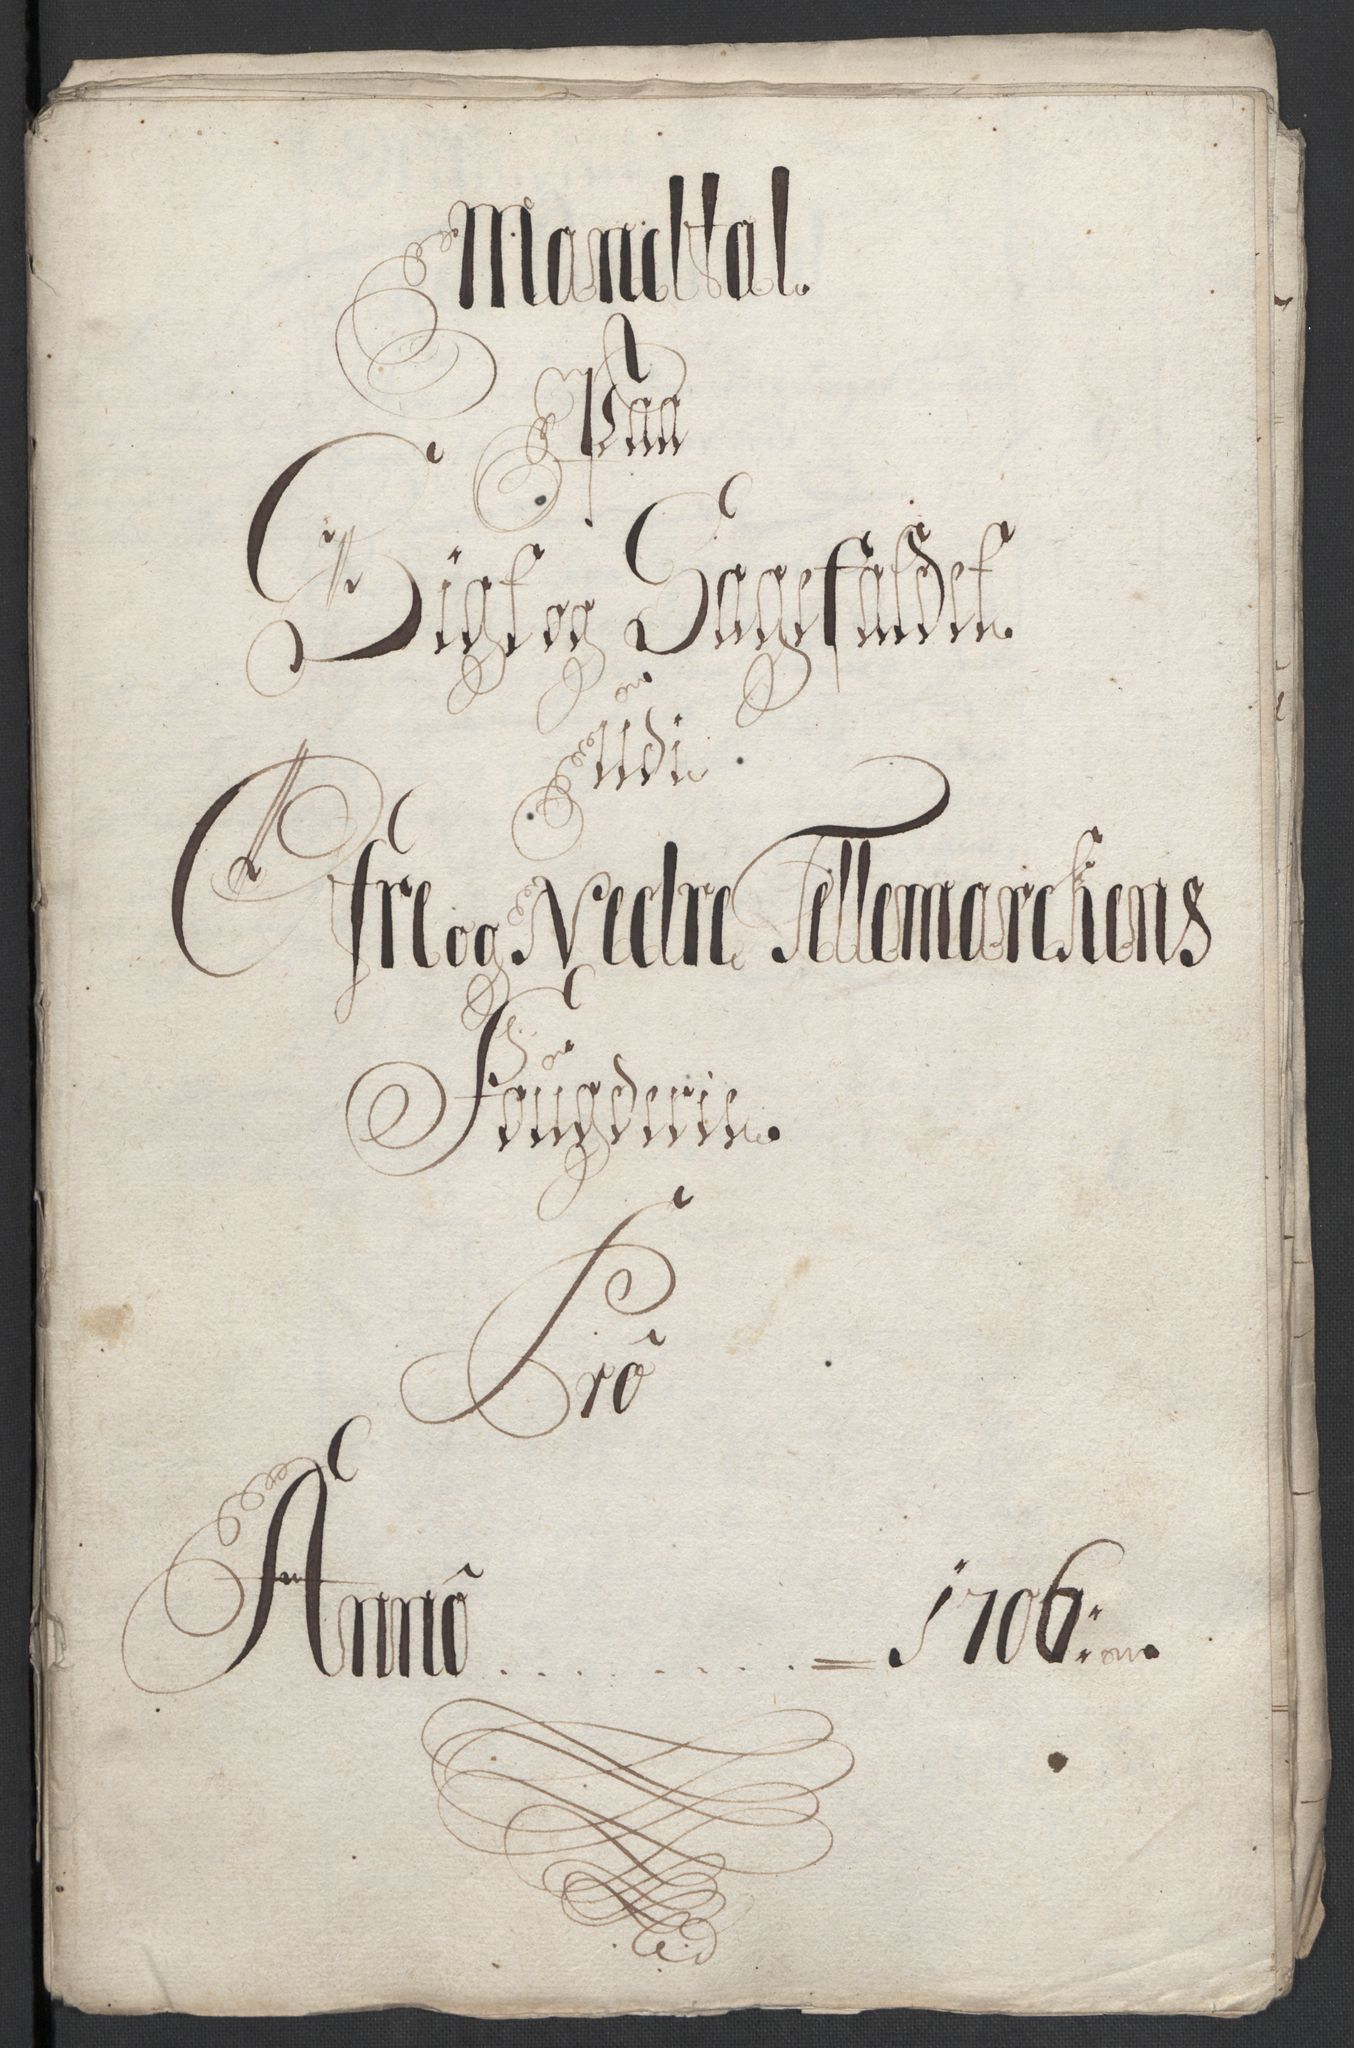 Mandtal.
Paa
Sigt og Sagefaldet.
Udi
Øfre og Nedre Tellemarckens
Fougderie.
Prô
Annô . . . . . . . . = 1706: